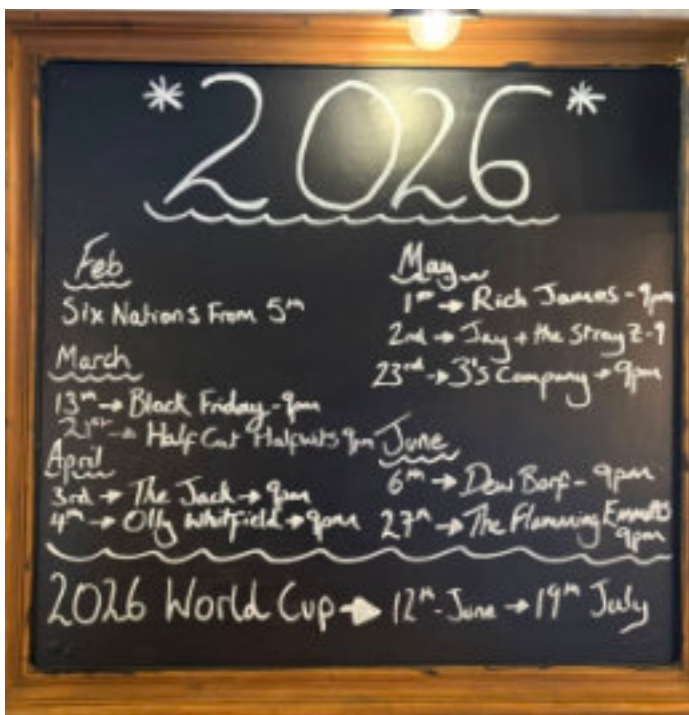 *2026*
Feb
Six Nations From 5th
March
13th → Black Friday - 9pm
21st → Half Cut Halfwits 9pm
April
3rd → The Jack → 9pm
4th → Olly Whitfield → 9pm
May
1st → Rich James - 9pm
2nd → Jay + the Stray Z - 9
23rd → 3's Company → 9pm
June
6th → Dew Barf - 9pm
27th → The Flamming
9pm
2026 World Cup → 12th - June → 19th July